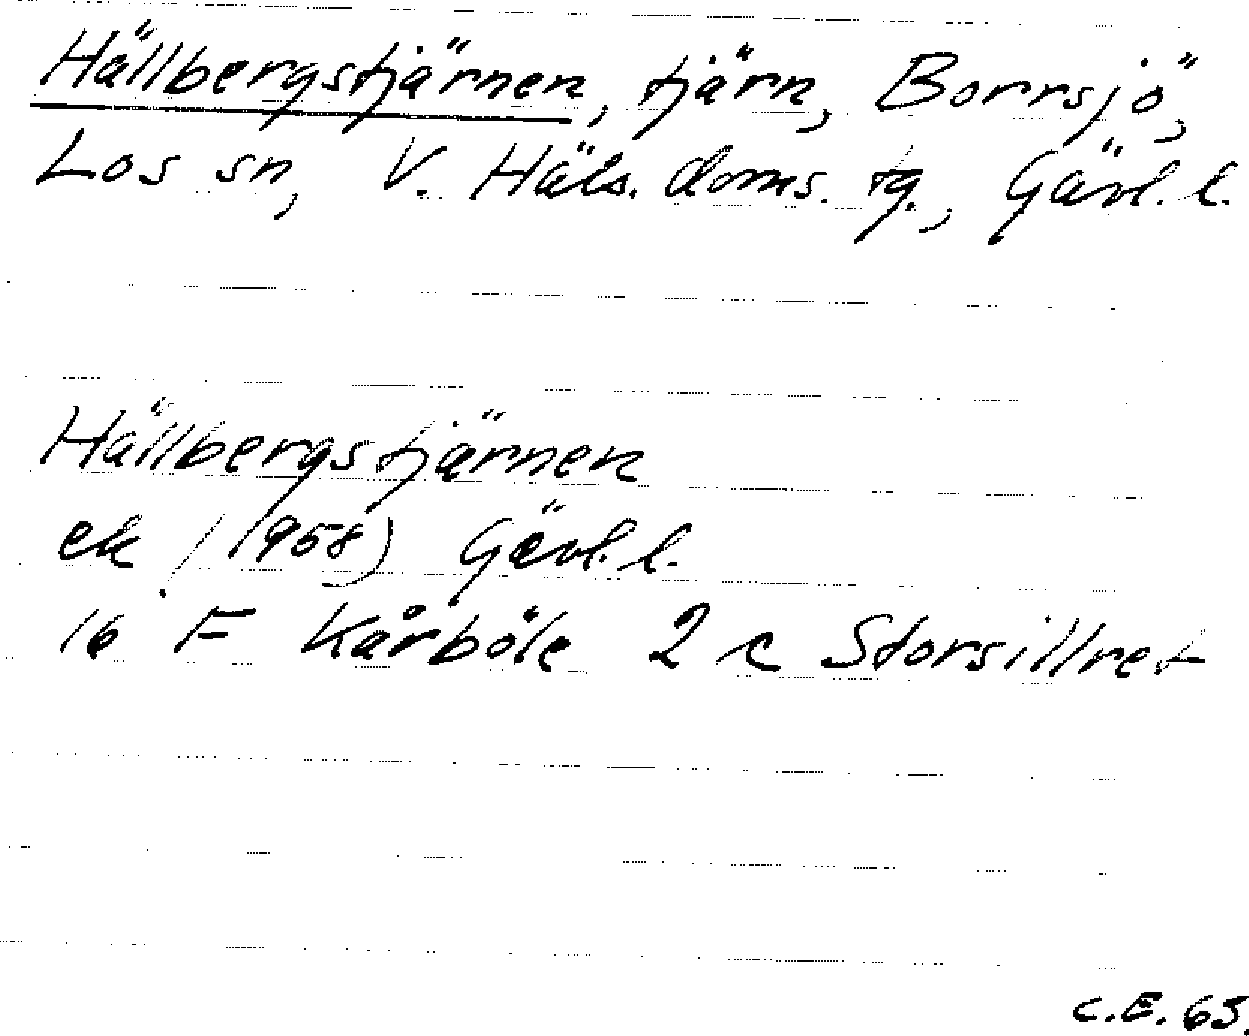 Hällbergstjärnen, tjärn, Borrsjö,
Los sn, V. Häls. doms. tg., Gävl. l.
Hällbergstjärnen
ek (1958) Gävl. l.
16 F Kårböle 2 c Storsillret
C.E. 63.